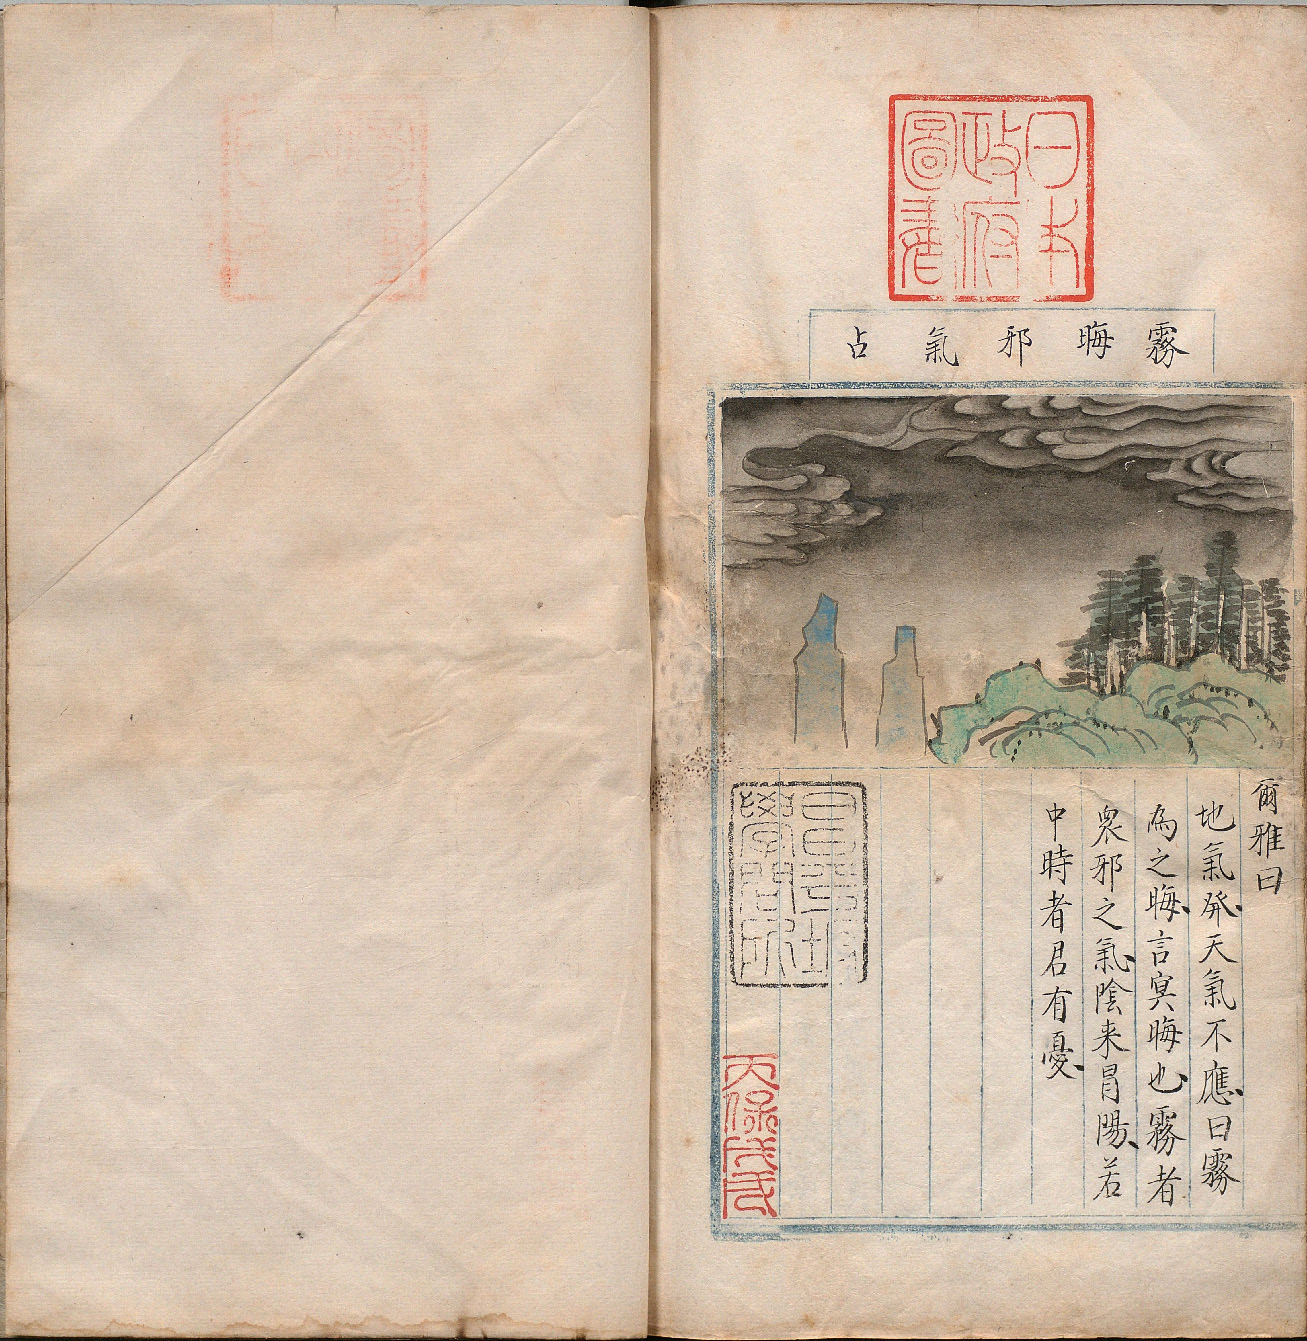 日本
政府
圖書
霧晦邪氣占
爾雅曰
地氣発天氣不應曰霧
為之晦言冥晦也霧者
衆邪之氣陰来冒陽若
中時者君有憂
昌平坂
學問所
天保庚子